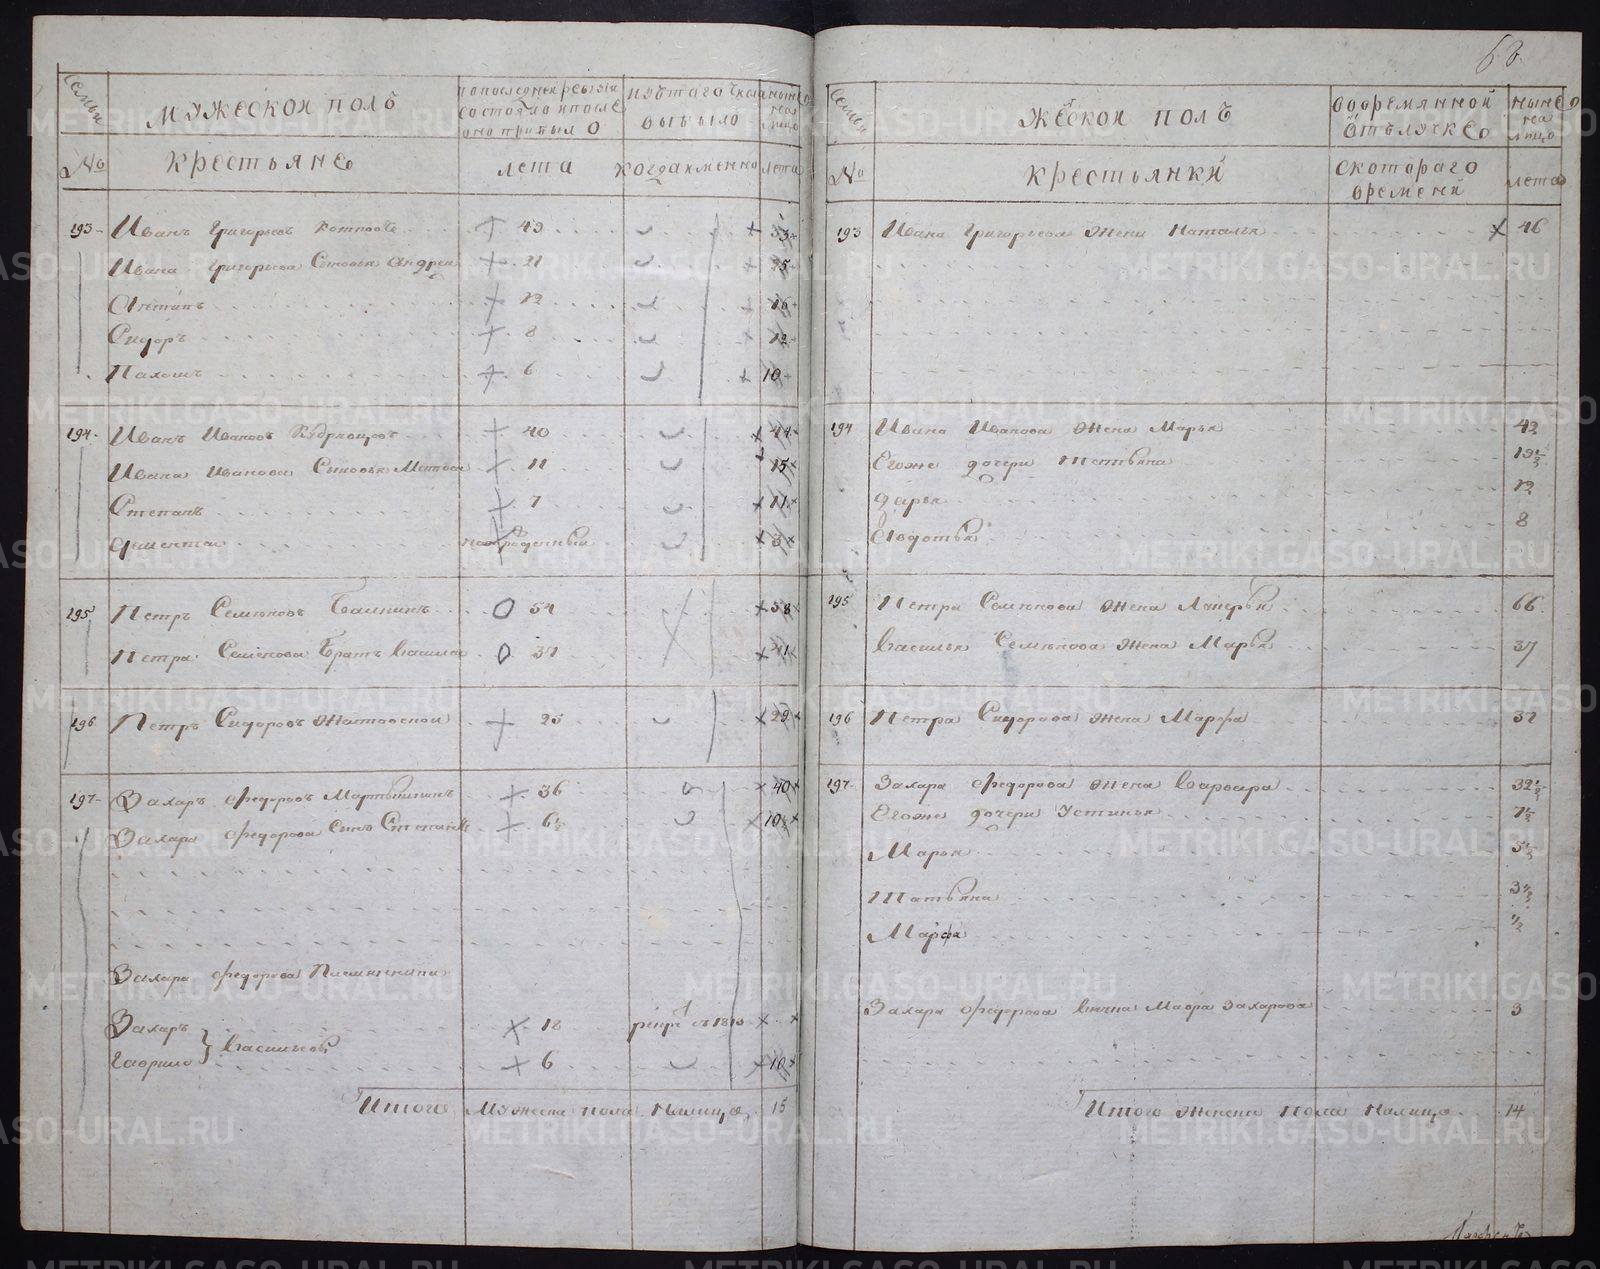 63.
Семьи
МУЖЕСКОЙ ПОЛЪ
По последней ревизіи состояло и после оно прибыло
Изътаго числа выбыло
ныне на лицо
№
Крестьяне
лета
когда именно
лета
193
Иванъ Григорьевъ
49
Ивана Григорьева Сыновья Андрей
21
25
12
16
Сидоръ
8
12
Пахомъ
6
10
194
Иванъ Ивановъ
40
44
Ивана Иванова Сыновья Матвей
11
15
Степанъ
7
11
Дементей
новорожденный
3
195
Петръ Семеновъ
54
58
Петра Семенова Братъ Василей
37
41
196
Петръ Сидоровъ
25
29
197
Захаръ Федоровъ Мартьяшкинъ
36
40
Захара Федорова Сынъ Степанъ
6½
10½
Захара Федорова Племянники
Захаръ
18
рекру съ 1813
Гаврило } Васильевы
6
10
Итого Мужеска пола Налицо 15
Семьи
ЖЕСКОЙ ПОЛЪ
Вовремянной Отълучке
ныне на лицо
№
Крестьянки
Скотораго времени
лета
193
Ивана Григорьева Жена Наталья
46
194
Ивана Иванова Жена Марья
42
Егоже дочери Татьяна
19½
Дарья
12
Евдотья
8
195
Петра Семенова Жена Лукерья
66
Василья Семенова Жена Марья
37
196
Петра Сидорова Жена Марфа
32
197
Захара Федорова Жена Варвара
32½
Егоже дочери Устинья
7½
Марья
5½
Татьяна
3½
Марфа
½
Захара Федорова внучка Мавра Захарова
3
Итого Женска пола Налицо 14
METRIKI.GASO-URAL.RU